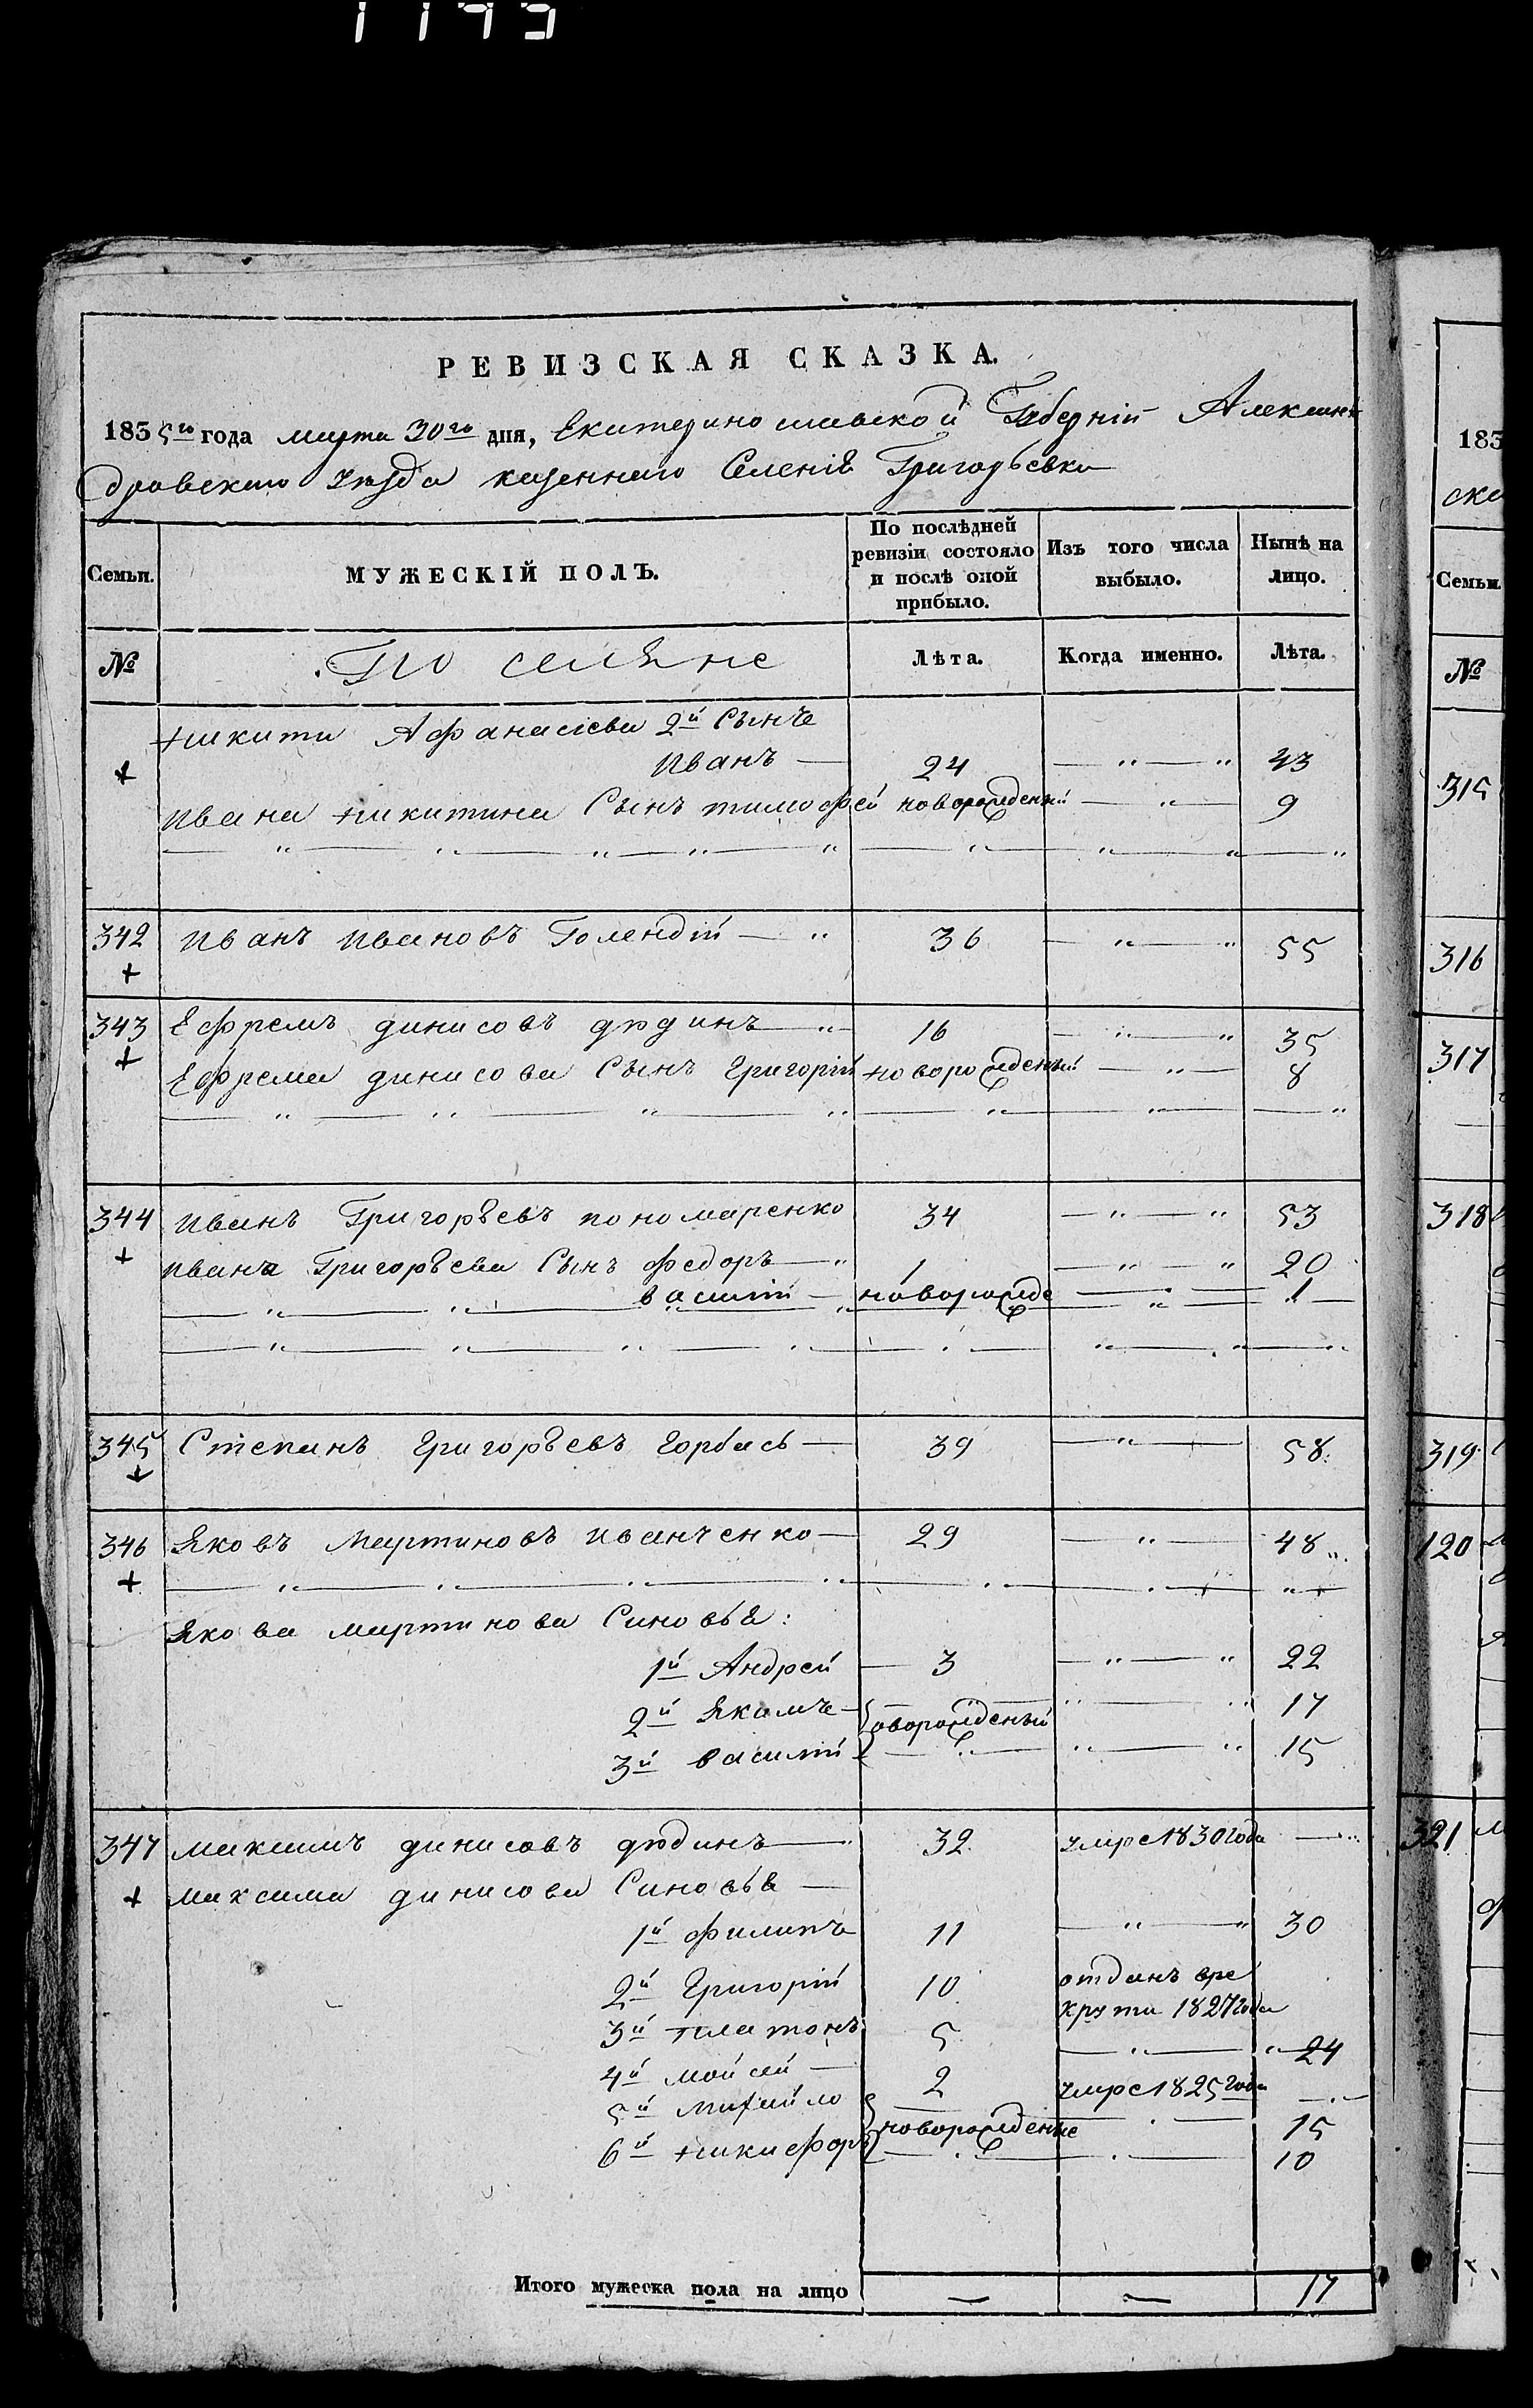 1195
РЕВИЗСКАЯ СКАЗКА.
1835го года марта 30го дня, Екатеринославской Губерній Алексан
дровскаго уезда казеннаго Селенія Григорьевки
Семьи. МУЖЕСКІЙ ПОЛЪ. По послѣдней ревизіи состояло и послѣ оной прибыло. Изъ того числа выбыло. Нынѣ на лицо.
№ Поселяне Лѣта. Когда именно. Лѣта.
Никити Афанасіева 2й Сынъ
Иванъ — 24 — " — " 43
Ивана Никитина Сынъ тимофей новорожденый — " — 9
342 Иванъ Ивановъ Голендій — " 36 — " — " 55
343 Ефремъ динисовъ дюдинъ — " 16 — " — " 35
Ефрема динисова Сынъ Григорій новорожденый — " — 8
344 Иванъ Григорьевъ пономаренко 34 — " — " 53
Ивана Григорьева Сынъ федоръ — " 1 — " — " 20
василій — новорожде — 1
345 Степанъ Григорьевъ Горбась — 39 — " — 58
346 Яковъ Мартиновъ иванченко — 29 — " — 48
Якова мартинова Синовья:
1й Андрей — 3 — " — " 22
2й Якимъ — оворожденый " — " 17
3й василій " — " 15
347 максимъ динисовъ дюдинъ — 32 умре 1830 года — "
максима динисова Синовья —
1й филипъ 11 — " — " 30
2й Григорій 10 отданъ вре
круты 1827 года
3й платонъ 5 — " — " 24
4й мойсей — 2 умре 1825 года —
5й михайло новорожденые — 15
6й никифоръ — 10
Итого мужеска пола на лицо — — 17
183
ска
Семьи.
№
315
316
317
318
319
120
321